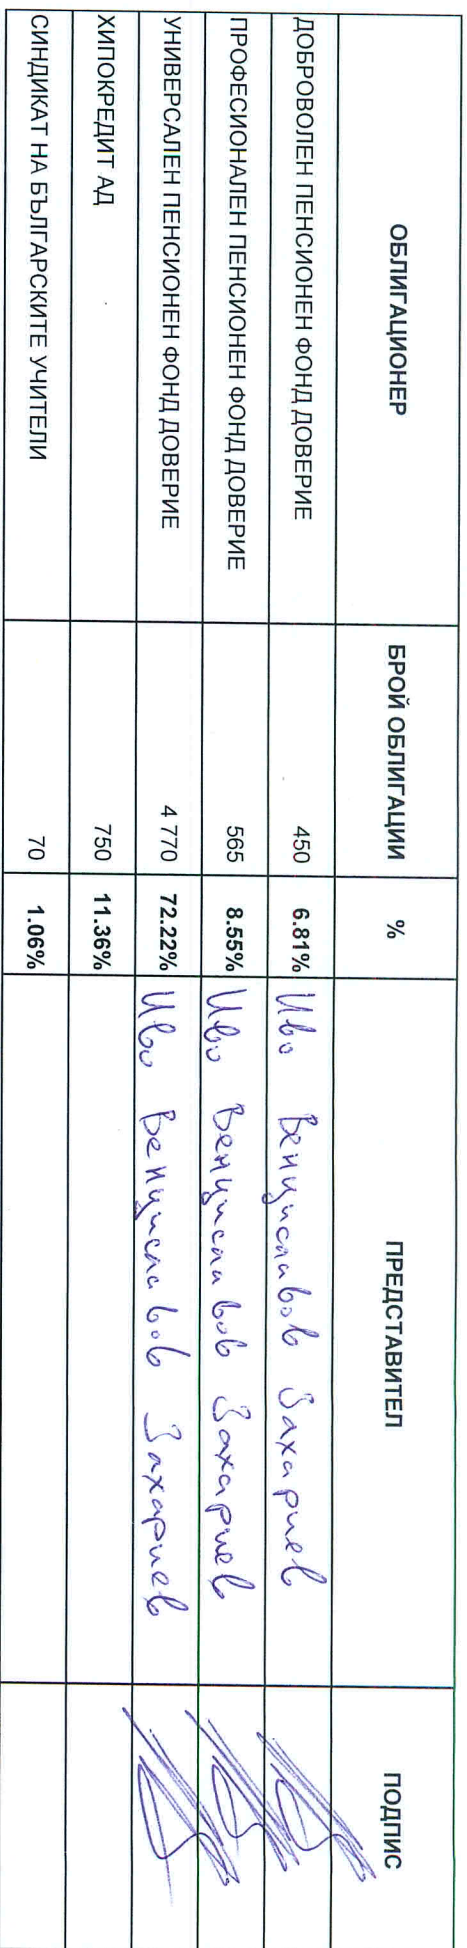 ОБЛИГАЦИОНЕР БРОЙ ОБЛИГАЦИИ % ПРЕДСТАВИТЕЛ ПОДПИС
ДОБРОВОЛЕН ПЕНСИОНЕН ФОНД ДОВЕРИЕ 450 6.81% Иво Венциславов Захариев
ПРОФЕСИОНАЛЕН ПЕНСИОНЕН ФОНД ДОВЕРИЕ 565 8.55% Иво Венциславов Захариев
УНИВЕРСАЛЕН ПЕНСИОНЕН ФОНД ДОВЕРИЕ 4 770 72.22% Иво Венциславов Захариев
ХИПОКРЕДИТ АД 750 11.36%
СИНДИКАТ НА БЪЛГАРСКИТЕ УЧИТЕЛИ 70 1.06%